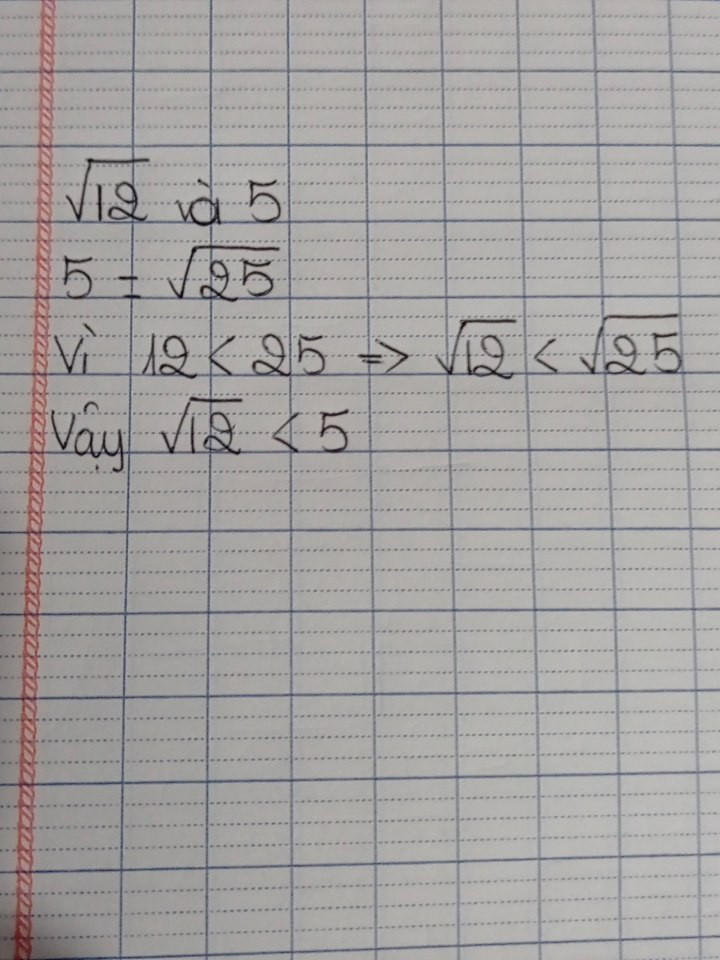 √12 và 5
5 = √25
Vì 12 < 25 => √12 < √25
Vậy √12 < 5